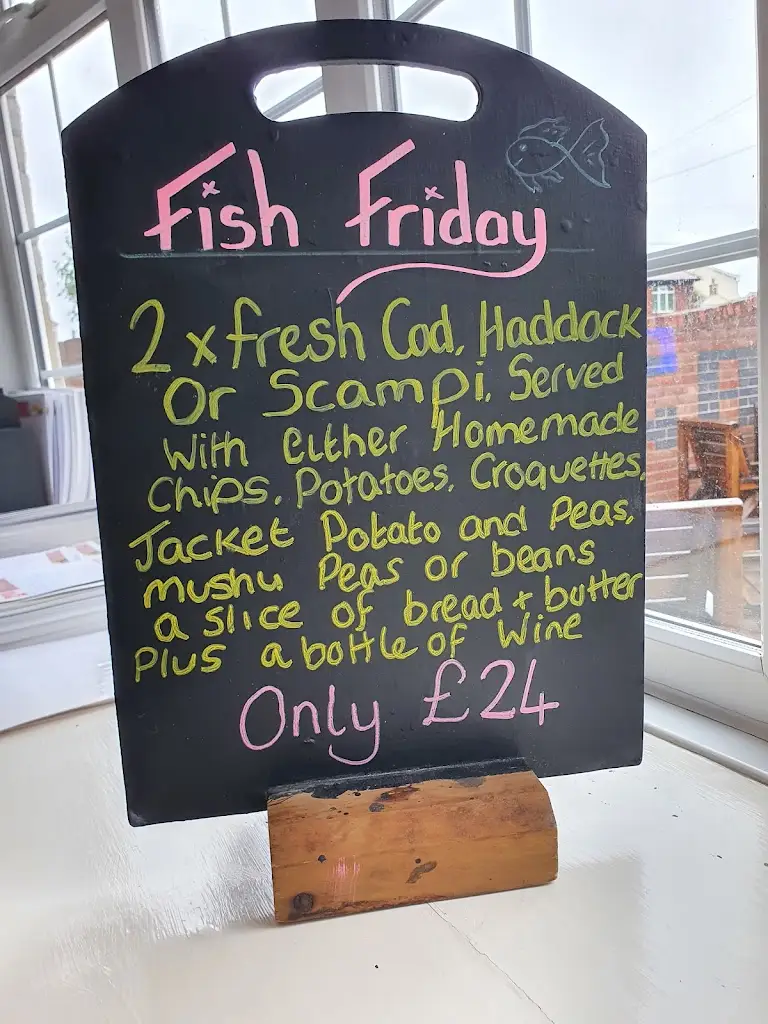 Fish Friday
2 x fresh Cod, Haddock
Or Scampi, Served
With either Homemade
Chips, Potatoes, Croquettes,
Jacket Potato and Peas,
mushy Peas or beans
a slice of bread + butter
Plus a bottle of Wine
Only £24